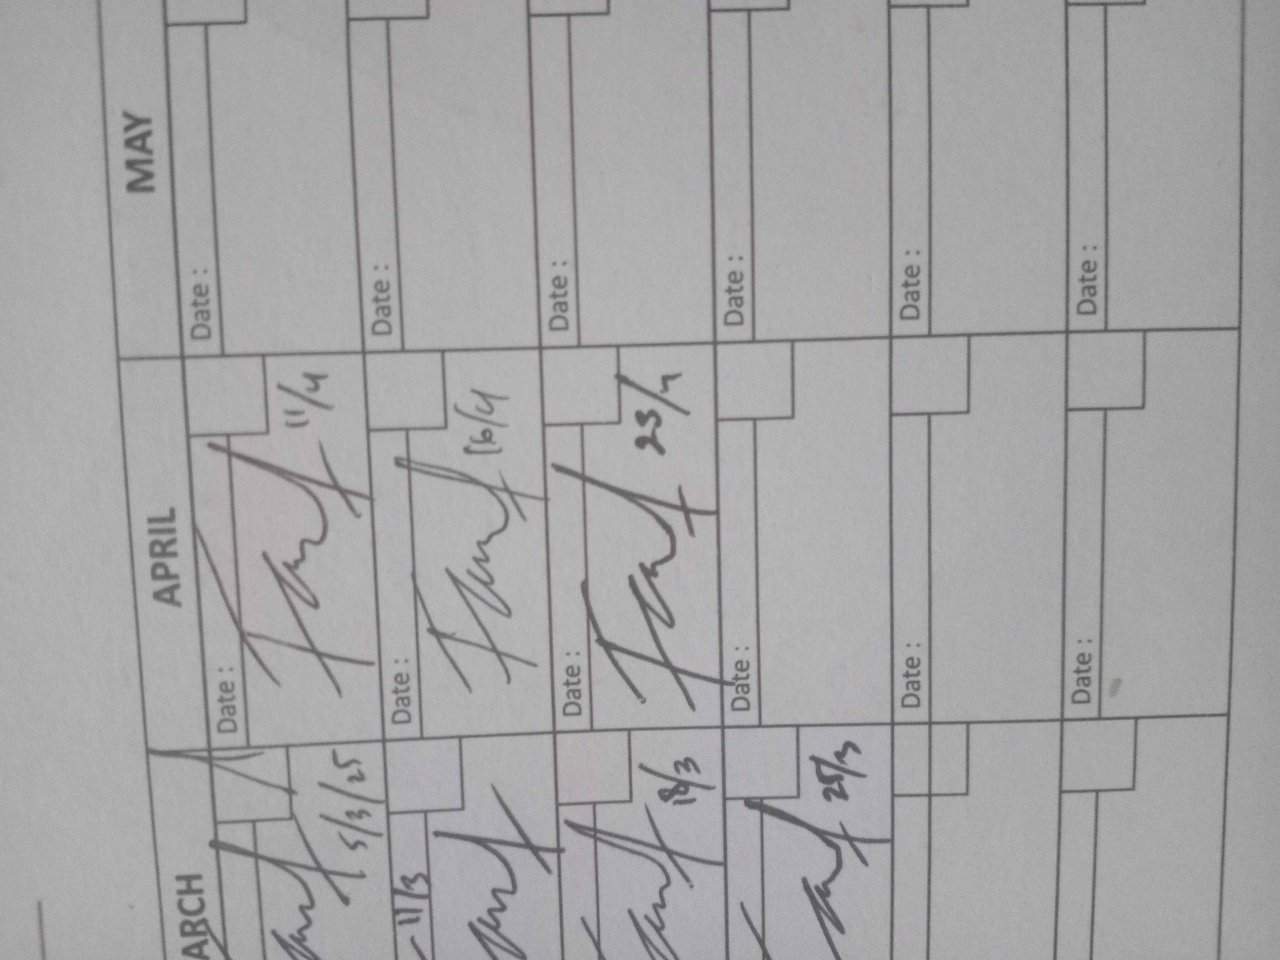 ARCH APRIL MAY
Date : Date :
5/3/25 11/4
11/3 Date : Date :
16/4
Date : Date :
18/3 23/4
Date : Date :
25/3
Date : Date :
Date : Date :